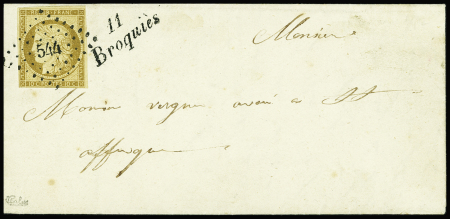 REPUB. FRANC.
544
11
Broquiès
Monsieur
Monsieur vergne avoué a St
affrique